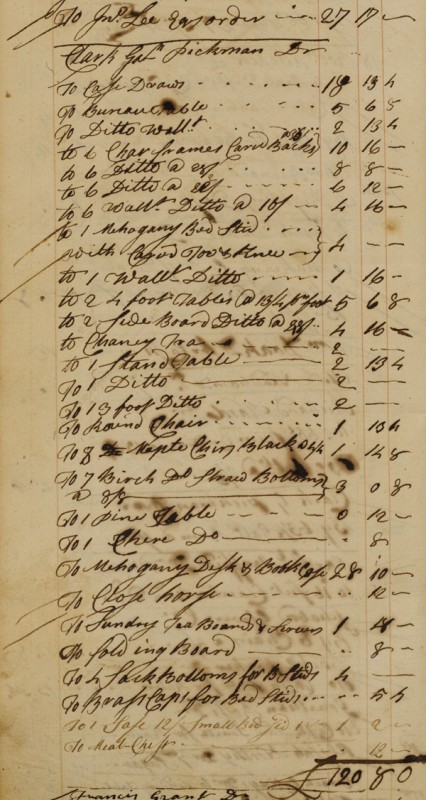 To Jnº Lee Esqs order 27 17 —
Clark Getn Pickman Dr
To Case Draws 18 13 4
To Bureau table 5 6 8
To Ditto Wallt 2 13 4
to 6 Chair frames Carvd Backs 10 16 —
to 6 Ditto a 28/ 8 8 —
to 6 Ditto a 22/ 6 12 —
to 6 Wallt Ditto a 16/ 4 16 —
to 1 Mahogany Bed Stid
with Carvd Toe & Knee 4 — —
to 1 Wallt Ditto 1 16 —
to 2 4 foot Tables @ 13/4 pr foot 5 6 8
to 2 Side Board Ditto a 48/ 4 16 —
to Chaney Tra 2 —
to 1 Stand Table 2 13 4
To 1 Ditto 2 —
To 1 3 foot Ditto 2 —
To Round Chair 1 13 4
To 8 Chirs Black 1 4 8
To 7 Birch Do Straw Bottoms
a 8/8 3 0 8
To 1 Pine Table 0 12 —
To 1 Chere Do 8
To Mehogany Desk & Book Case 28 10 —
To Close horse 12 —
To Sundry Tea Boards & Screws 1 18 —
To folding Board 8 —
To 4 Sack Bottoms for B Stids 4 —
To Brass Caps for Bed Stids 5 4
To 1 12/ Small Bed Stid 1 2 —
To Meat Chest 12 —
£ 120 8 0
Francis Grant Dr